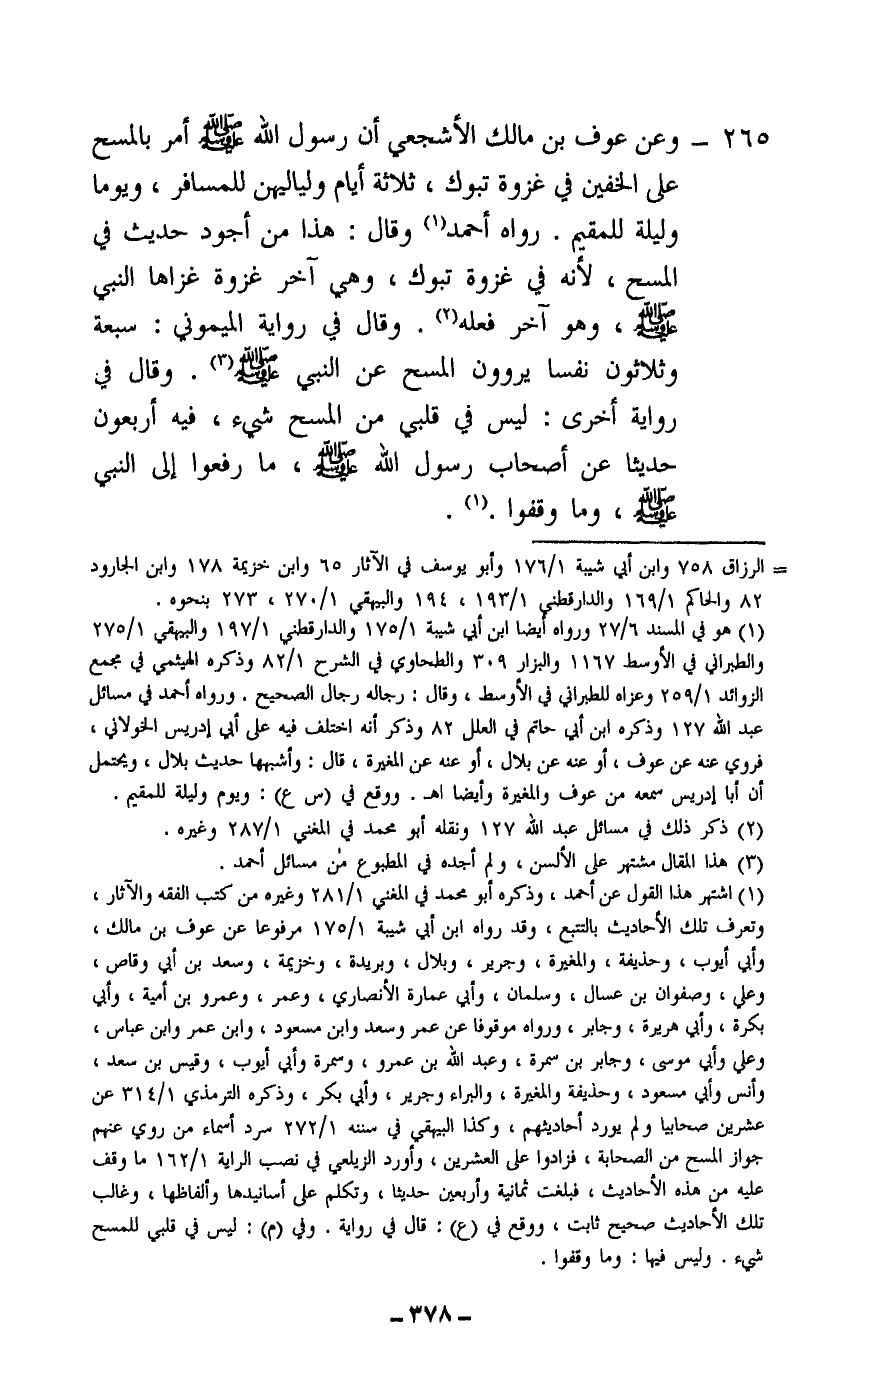 ٢٦٥ – وعن عوف بن مالك الأشجعي أن رسول الله ﷺ أمر بالمسح
على الخفين في غزوة تبوك ، ثلاثة أيام ولياليهن للمسافر ، ويوما
وليلة للمقيم . رواه أحمد(١) وقال : هذا من أجود حديث في
المسح ، لأنه في غزوة تبوك ، وهي آخر غزوة غزاها النبي
ﷺ ، وهو آخر فعله(٢) . وقال في رواية الميموني : سبعة
وثلاثون نفسا يروون المسح عن النبي ﷺ(٣) . وقال في
رواية أخرى : ليس في قلبي من المسح شيء ، فيه أربعون
حديثا عن أصحاب رسول الله ﷺ ، ما رفعوا إلى النبي
ﷺ ، وما وقفوا .(١) .
= الرزاق ٧٥٨ وابن أبي شيبة ١٧٦/١ وأبو يوسف في الآثار ٦٥ وابن خزيمة ١٧٨ وابن الجارود
٨٢ والحاكم ١٦٩/١ والدارقطني ١٩٣/١ ، ١٩٤ والبيهقي ٢٧٠/١ ، ٢٧٣ بنحوه .
(١) هو في المسند ٢٧/٦ ورواه أيضا ابن أبي شيبة ١٧٥/١ والدارقطني ١٩٧/١ والبيهقي ٢٧٥/١
والطبراني في الأوسط ١١٦٧ والبزار ٣٠٩ والطحاوي في الشرح ٨٢/١ وذكره الهيثمي في مجمع
الزوائد ٢٥٩/١ وعزاه للطبراني في الأوسط ، وقال : رجاله رجال الصحيح . ورواه أحمد في مسائل
عبد الله ١٢٧ وذكره ابن أبي حاتم في العلل ٨٢ وذكر أنه اختلف فيه على أبي إدريس الخولاني ،
فروي عنه عن عوف ، أو عنه عن بلال ، أو عنه عن المغيرة ، قال : وأشبهها حديث بلال ، ويحتمل
أن أبا إدريس سمعه من عوف والمغيرة وأيضا اهـ . ووقع في (س ع) : ويوم وليلة للمقيم .
(٢) ذكر ذلك في مسائل عبد الله ١٢٧ ونقله أبو محمد في المغني ٢٨٧/١ وغيره .
(٣) هذا المقال مشتهر على الألسن ، ولم أجده في المطبوع من مسائل أحمد .
(١) اشتهر هذا القول عن أحمد ، وذكره أبو محمد في المغني ٢٨١/١ وغيره من كتب الفقه والآثار ،
وتعرف تلك الأحاديث بالتتبع ، وقد رواه ابن أبي شيبة ١٧٥/١ مرفوعا عن عوف بن مالك ،
وأبي أيوب ، وحذيفة ، والمغيرة ، وجرير ، وبلال ، وبريدة ، وخزيمة ، وسعد بن أبي وقاص ،
وعلي ، وصفوان بن عسال ، وسلمان ، وأبي عمارة الأنصاري ، وعمر ، وعمرو بن أمية ، وأبي
بكرة ، وأبي هريرة ، وجابر ، ورواه موقوفا عن عمر وسعد وابن مسعود ، وابن عمر وابن عباس ،
وعلي وأبي موسى ، وجابر بن سمرة ، وعبد الله بن عمرو ، وسمرة وأبي أيوب ، وقيس بن سعد ،
وأنس وأبي مسعود ، وحذيفة والمغيرة ، والبراء وجرير ، وأبي بكر ، وذكره الترمذي ٣١٤/١ عن
عشرين صحابيا ولم يورد أحاديثهم ، وكذا البيهقي في سننه ٢٧٢/١ سرد أسماء من روي عنهم
جواز المسح من الصحابة ، فزادوا على العشرين ، وأورد الزيلعي في نصب الراية ١٦٢/١ ما وقف
عليه من هذه الأحاديث ، فبلغت ثمانية وأربعين حديثا ، وتكلم على أسانيدها وألفاظها ، وغالب
تلك الأحاديث صحيح ثابت ، ووقع في (ع) : قال في رواية . وفي (م) : ليس في قلبي للمسح
شيء . وليس فيها : وما وقفوا .
– ٣٧٨ –